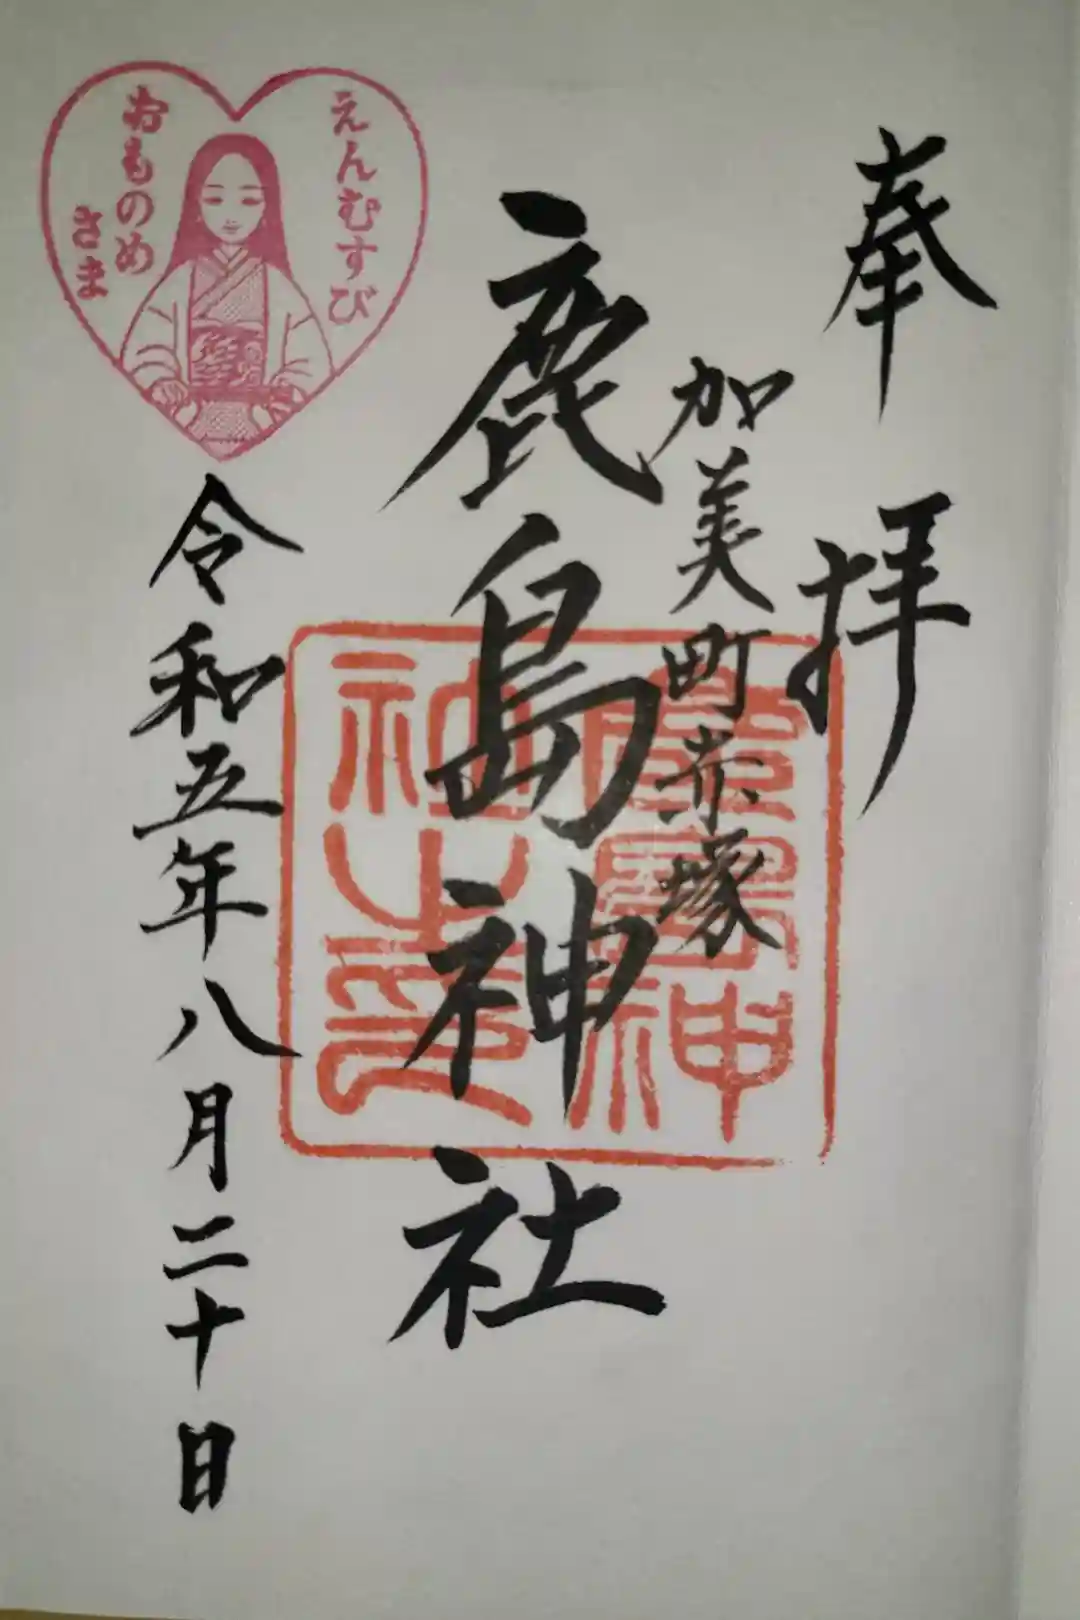 奉拝
加美町赤塚
鹿島神社
鹿島神
社之印
えんむすび
おものめ
さま
令和五年八月二十日